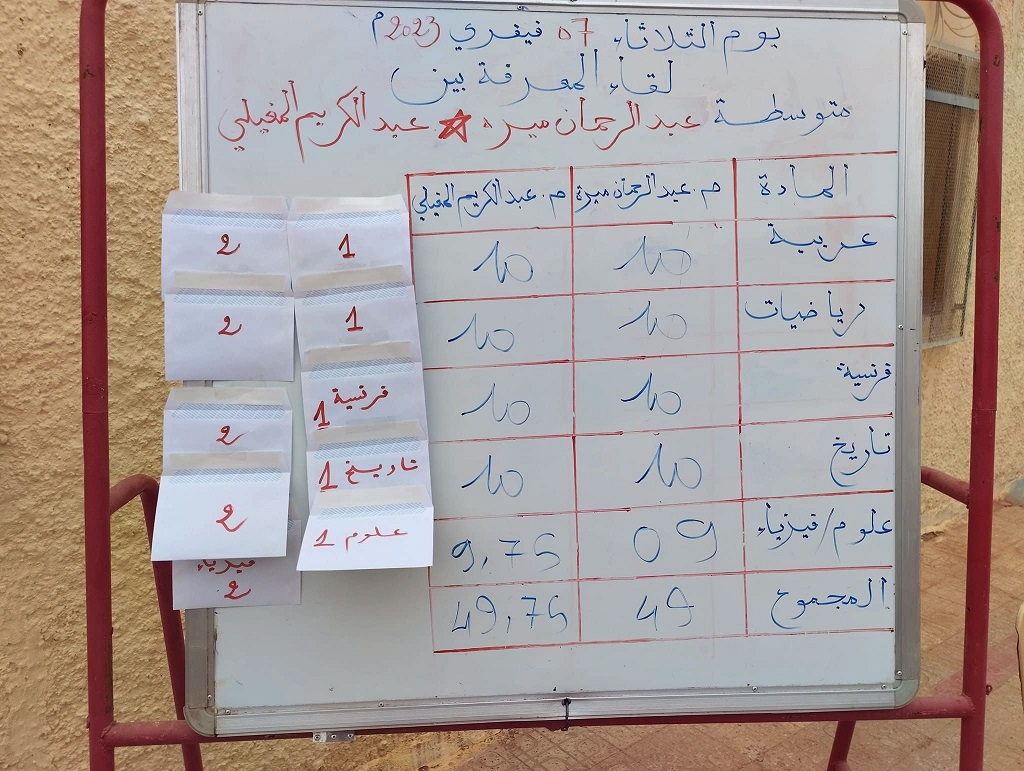 يوم الثلاثاء 07 فيفري 2023 م
لقاء المعرفة بين
متوسطة عبد الرحمان ميره ☆ عبد الكريم المغيلي
المادة م. عبد الرحمان ميرة م. عبد الكريم المغيلي
عربية 10 10
رياضيات 10 10
فرنسية 10 10
تاريخ 10 10
علوم/فيزياء 09 9,75
المجموع 49 49,75
1 2
1 2
فرنسية 1
2
تاريخ 1
2
علوم 1
فيزياء
2